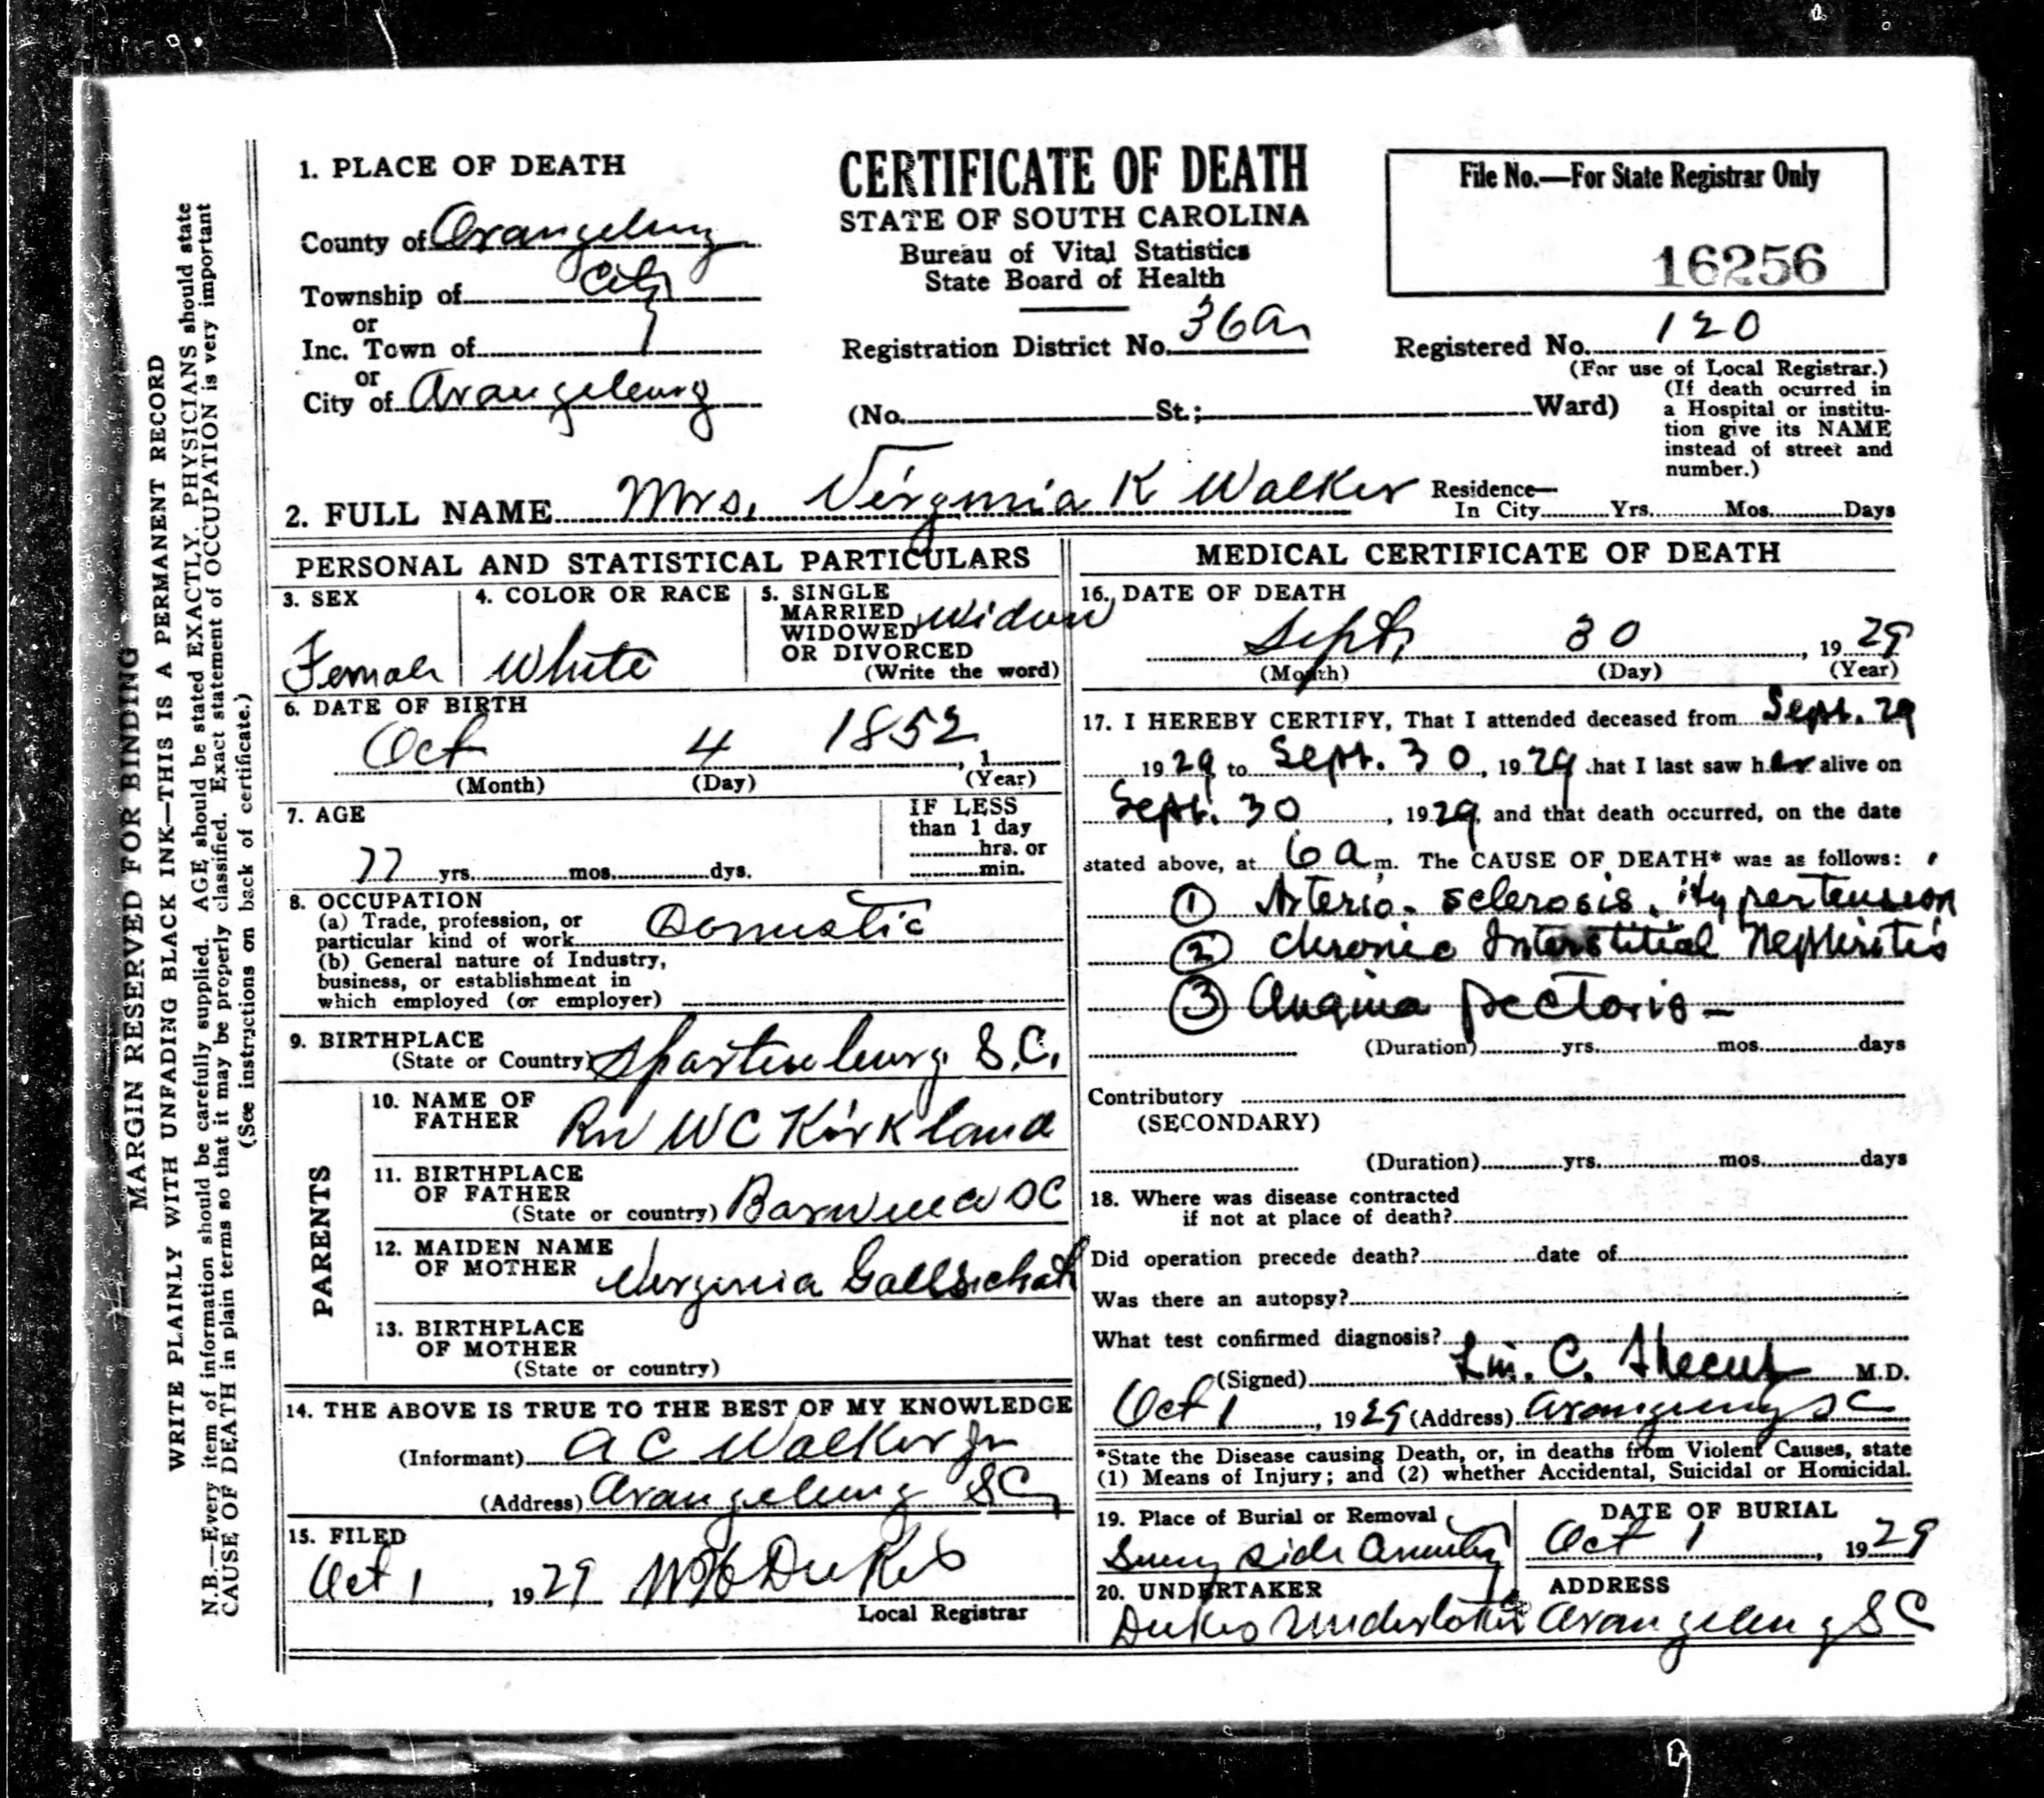 MARGIN RESERVED FOR BINDING
WRITE PLAINLY WITH UNFADING BLACK INK—THIS IS A PERMANENT RECORD
N.B.—Every item of information should be carefully supplied. AGE should be stated EXACTLY. PHYSICIANS should state
CAUSE OF DEATH in plain terms so that it may be properly classified. Exact statement of OCCUPATION is very important
(See instructions on back of certificate.)
1. PLACE OF DEATH
County of Orangeburg
Township of City
or
Inc. Town of
or
City of Orangeburg
CERTIFICATE OF DEATH
STATE OF SOUTH CAROLINA
Bureau of Vital Statistics
State Board of Health
Registration District No. 36a
(No. St.; Ward)
File No.—For State Registrar Only
16256
Registered No. 120
(For use of Local Registrar.)
(If death ocurred in
a Hospital or institu-
tion give its NAME
instead of street and
number.)
2. FULL NAME Mrs. Virginia K Walker
Residence—
In City Yrs. Mos. Days
PERSONAL AND STATISTICAL PARTICULARS
3. SEX
Female
4. COLOR OR RACE
White
5. SINGLE
MARRIED
WIDOWED
OR DIVORCED
(Write the word)
Widow
6. DATE OF BIRTH
Oct 4 1852, 1
(Month) (Day) (Year)
7. AGE
77 yrs. mos. dys.
IF LESS
than 1 day
hrs. or
min.
8. OCCUPATION
(a) Trade, profession, or
particular kind of work Domestic
(b) General nature of Industry,
business, or establishment in
which employed (or employer)
9. BIRTHPLACE
(State or Country) Spartenburg S.C.
PARENTS
10. NAME OF
FATHER
W C Kirkland
11. BIRTHPLACE
OF FATHER
(State or country) SC
12. MAIDEN NAME
OF MOTHER
Virginia
13. BIRTHPLACE
OF MOTHER
(State or country)
14. THE ABOVE IS TRUE TO THE BEST OF MY KNOWLEDGE
(Informant) A C Walker Jr
(Address) Orangeburg SC
15. FILED
Oct 1, 1929 Dukes
Local Registrar
MEDICAL CERTIFICATE OF DEATH
16. DATE OF DEATH
Sept. 30, 1929
(Month) (Day) (Year)
17. I HEREBY CERTIFY, That I attended deceased from Sept. 29
1929 to Sept. 30, 1929 that I last saw her alive on
Sept. 30, 1929, and that death occurred, on the date
stated above, at 6 a m. The CAUSE OF DEATH* was as follows:
① Arterio-sclerosis, Hypertension
② Chronic Interstitial Nephritis
③ Angina Pectoris –
(Duration) yrs. mos. days
Contributory
(SECONDARY)
(Duration) yrs. mos. days
18. Where was disease contracted
if not at place of death?
Did operation precede death? date of
Was there an autopsy?
What test confirmed diagnosis?
(Signed) C. M.D.
Oct 1, 1929 (Address) Orangeburg SC
*State the Disease causing Death, or, in deaths from Violent Causes, state
(1) Means of Injury; and (2) whether Accidental, Suicidal or Homicidal.
19. Place of Burial or Removal
Sunny side
DATE OF BURIAL
Oct 1, 1929
20. UNDERTAKER
Dukes
ADDRESS
Orangeburg SC